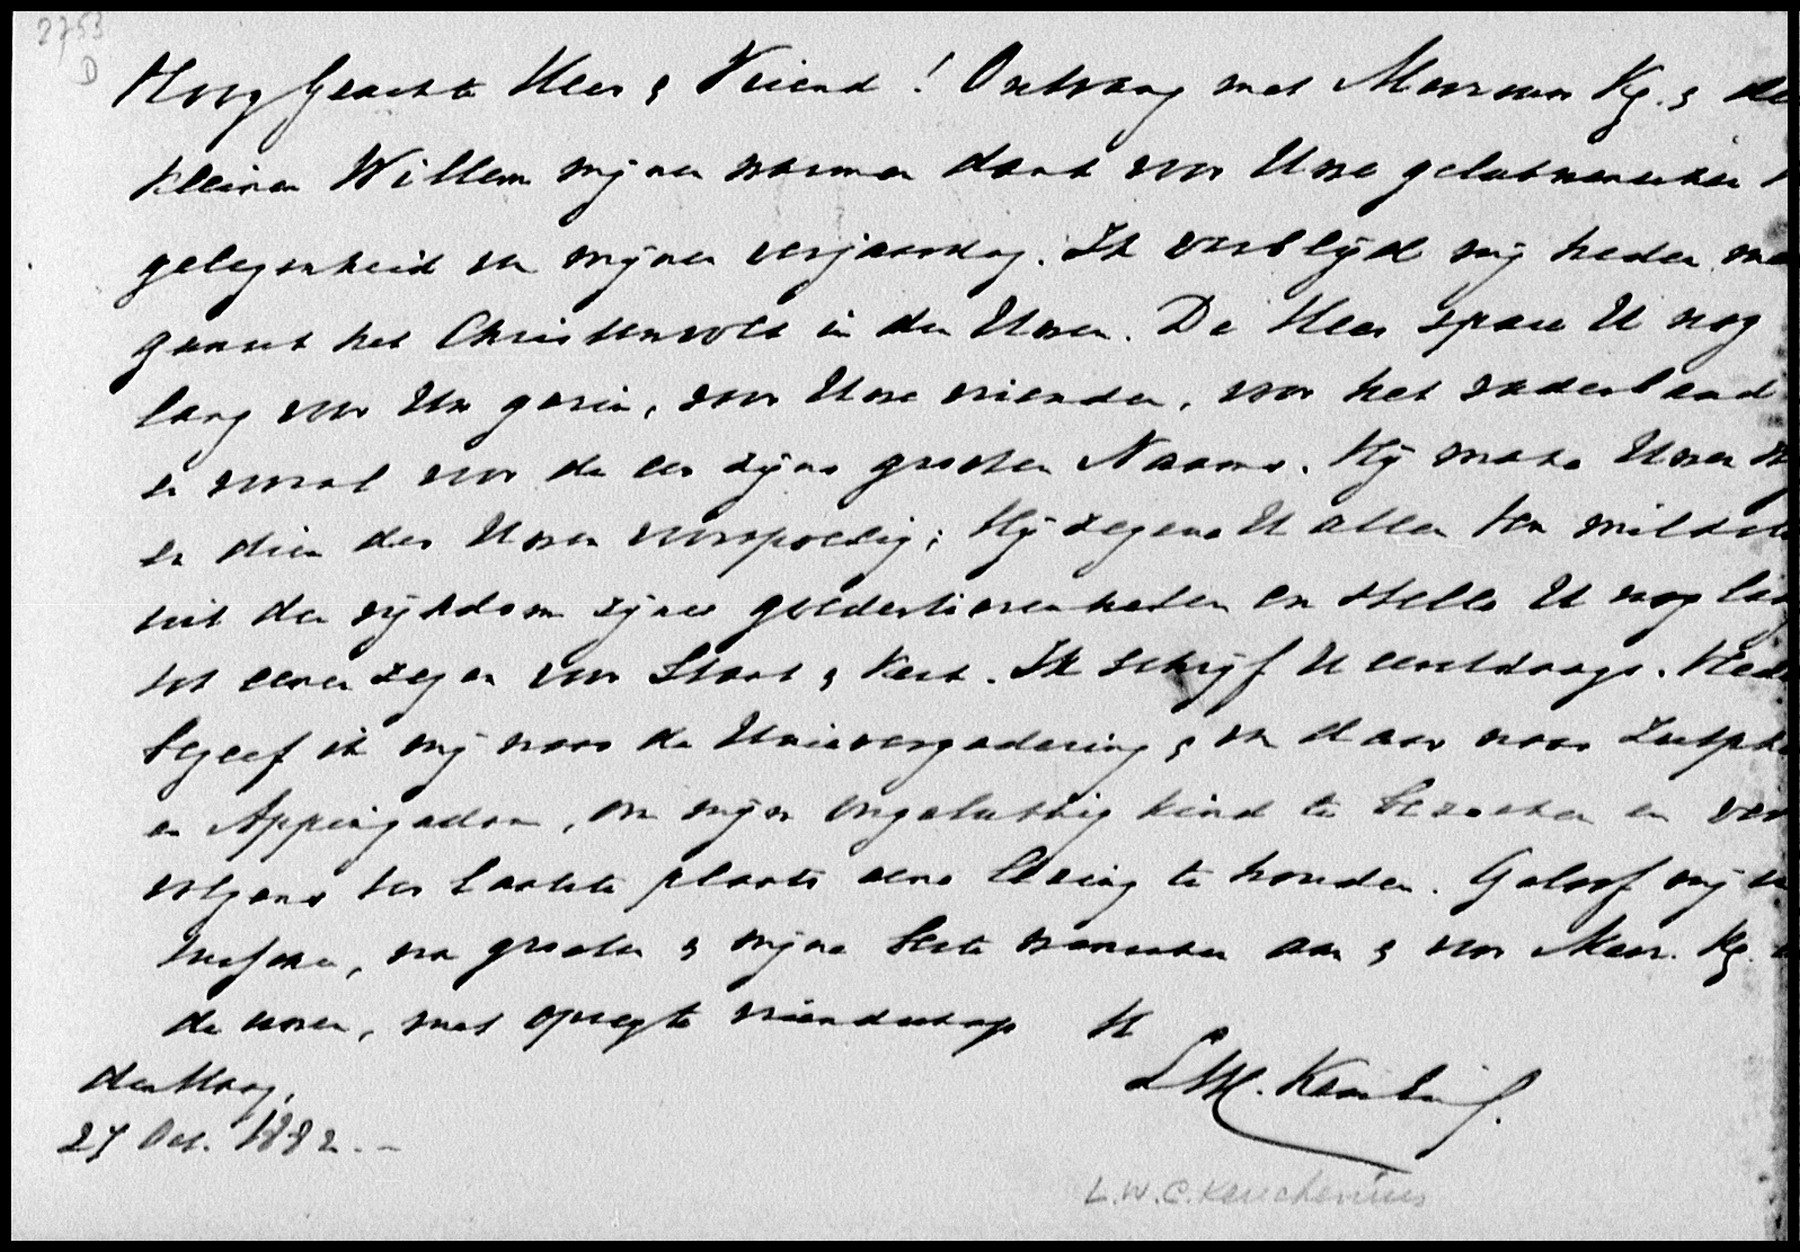 2753
D
HoogGeachte Heer & Vriend! Ontvang met Mevrouw Kg. & de
kleinen Willem mijnen warmen dank voor Uwe gelukwenschen
gelegenheid van mijnen verjaardag. Ik verblijd mij heden met
gansch het Christenvolk in den Uwen. De Heer spare U nog
lang voor Uw gezin, voor Uwe vrienden, voor het vaderland
en vooral voor de eer zijns grooten Naams. Hij make Uwen
en dien der Uwen voorspoedig; Hij zegene U allen ten mildste
uit den rijkdom zijner goedertierenheden en stelle U nog lang
tot eenen zegen voor Staat & Kerk. Ik schrijf U eerstdaags. Heden
begeef ik mij naar de Unievergadering & van daar naar Zutphe
en Appingadam, om mijn ongelukkig kind te bezoeken en ver
volgens ter laatste plaats eene lezing te houden. Geloof mij
na groeten & mijne beste wenschen aan & voor Mevr. Kg.
de uwen, met opregte vriendschap
den Haag,
27 Oct. 1882. -
LWC. Keuchenius.
L.W.C. Keuchenius